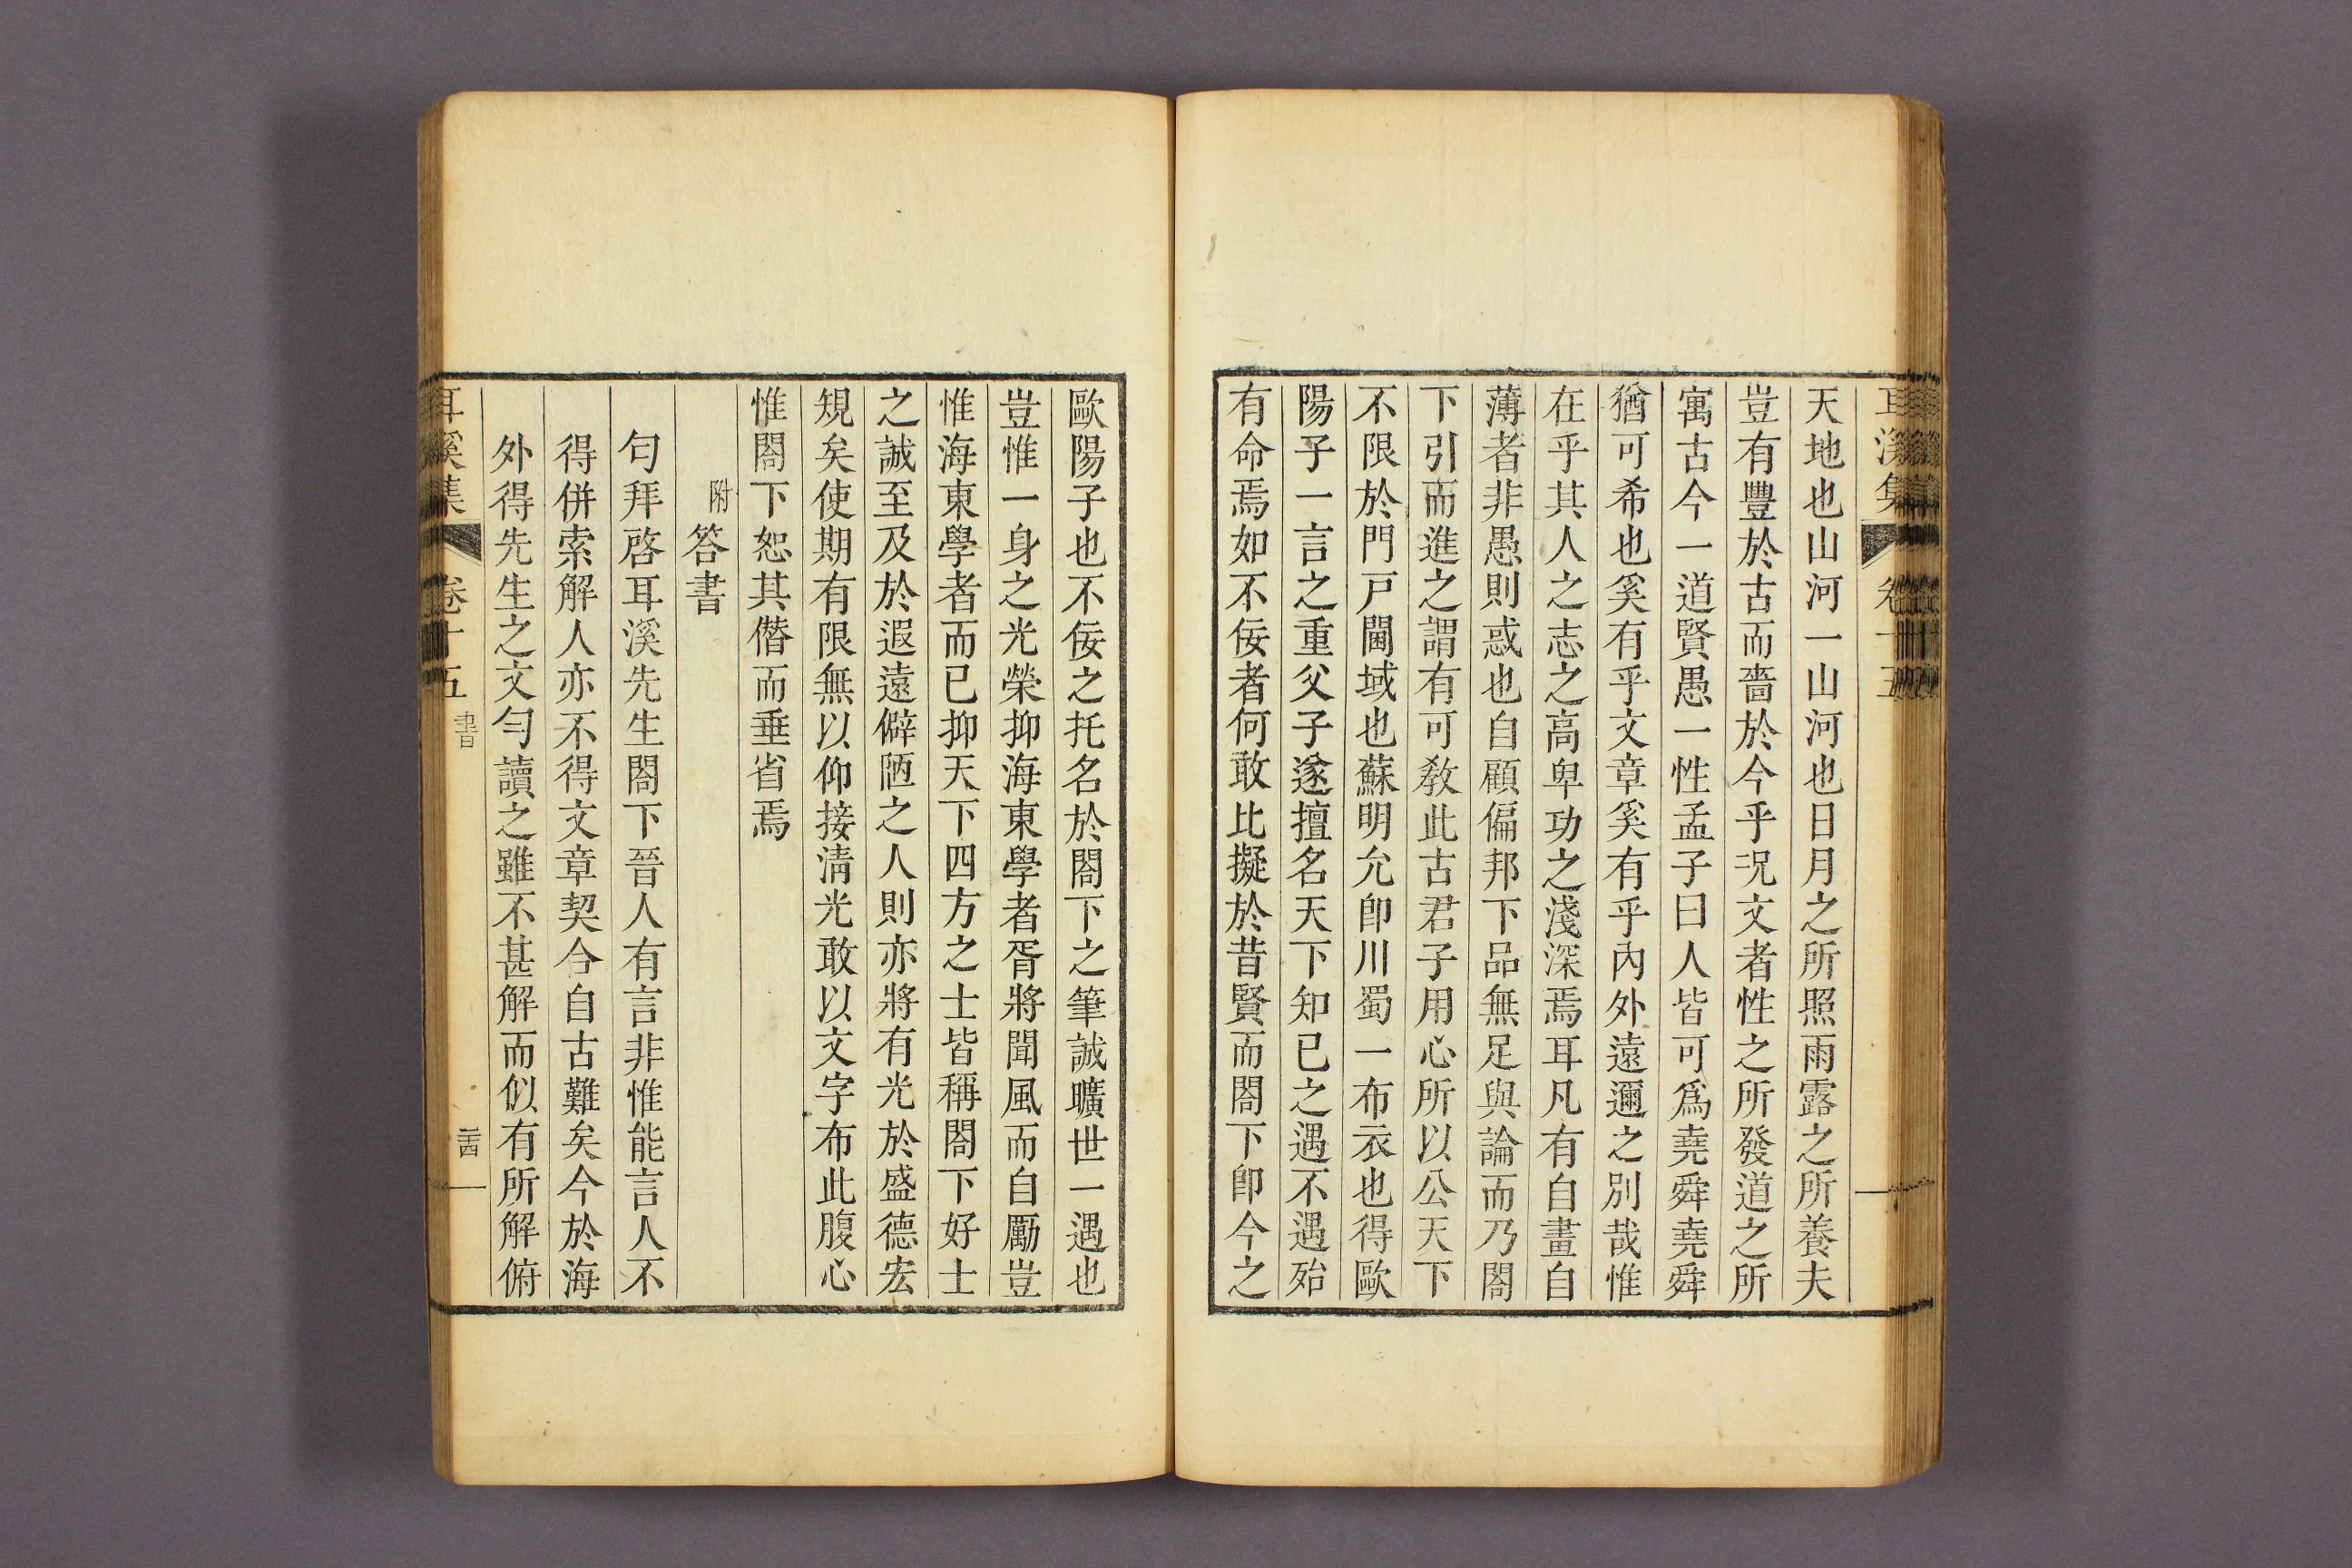 耳溪集 卷十五
天地也山河一山河也日月之所照雨露之所養夫
豈有豐於古而嗇於今乎况文者性之所發道之所
寓古今一道賢愚一性孟子曰人皆可爲堯舜堯舜
猶可希也奚有乎文章奚有乎內外遠邇之別哉惟
在乎其人之志之高卑功之淺深焉耳凡有自畫自
薄者非愚則惑也自顧偏邦下品無足與論而乃閤
下引而進之謂有可敎此古君子用心所以公天下
不限於門戸閫域也蘇明允卽川蜀一布衣也得歐
陽子一言之重父子遂擅名天下知已之遇不遇殆
有命焉如不佞者何敢比擬於昔賢而閤下卽今之
歐陽子也不佞之托名於閤下之筆誠曠世一遇也
豈惟一身之光榮抑海東學者胥將聞風而自勵豈
惟海東學者而已抑天下四方之士皆稱閤下好士
之誠至及於遐遠僻陋之人則亦將有光於盛德宏
規矣使期有限無以仰接淸光敢以文字布此腹心
惟閤下恕其僭而垂省焉
附答書
勻拜啓耳溪先生閤下晉人有言非惟能言人不
得併索解人亦不得文章契合自古難矣今於海
外得先生之文勻讀之雖不甚解而似有所解俯
耳溪集 卷十五 書 二十四